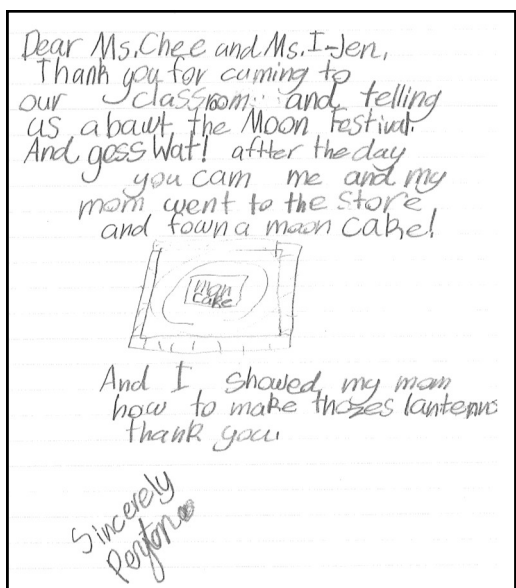 Dear Ms.Chee and Ms.I-Jen,
Thank you for cuming to
our classroom and telling
us abawt the Moon Festival.
And gess Wat! aftter the day
you cam me and my
mom went to the store
and fown a moon cake!
man
cake
And I showed my mom
how to make thozes lanterns
thank you.
Sincerely
Peyton